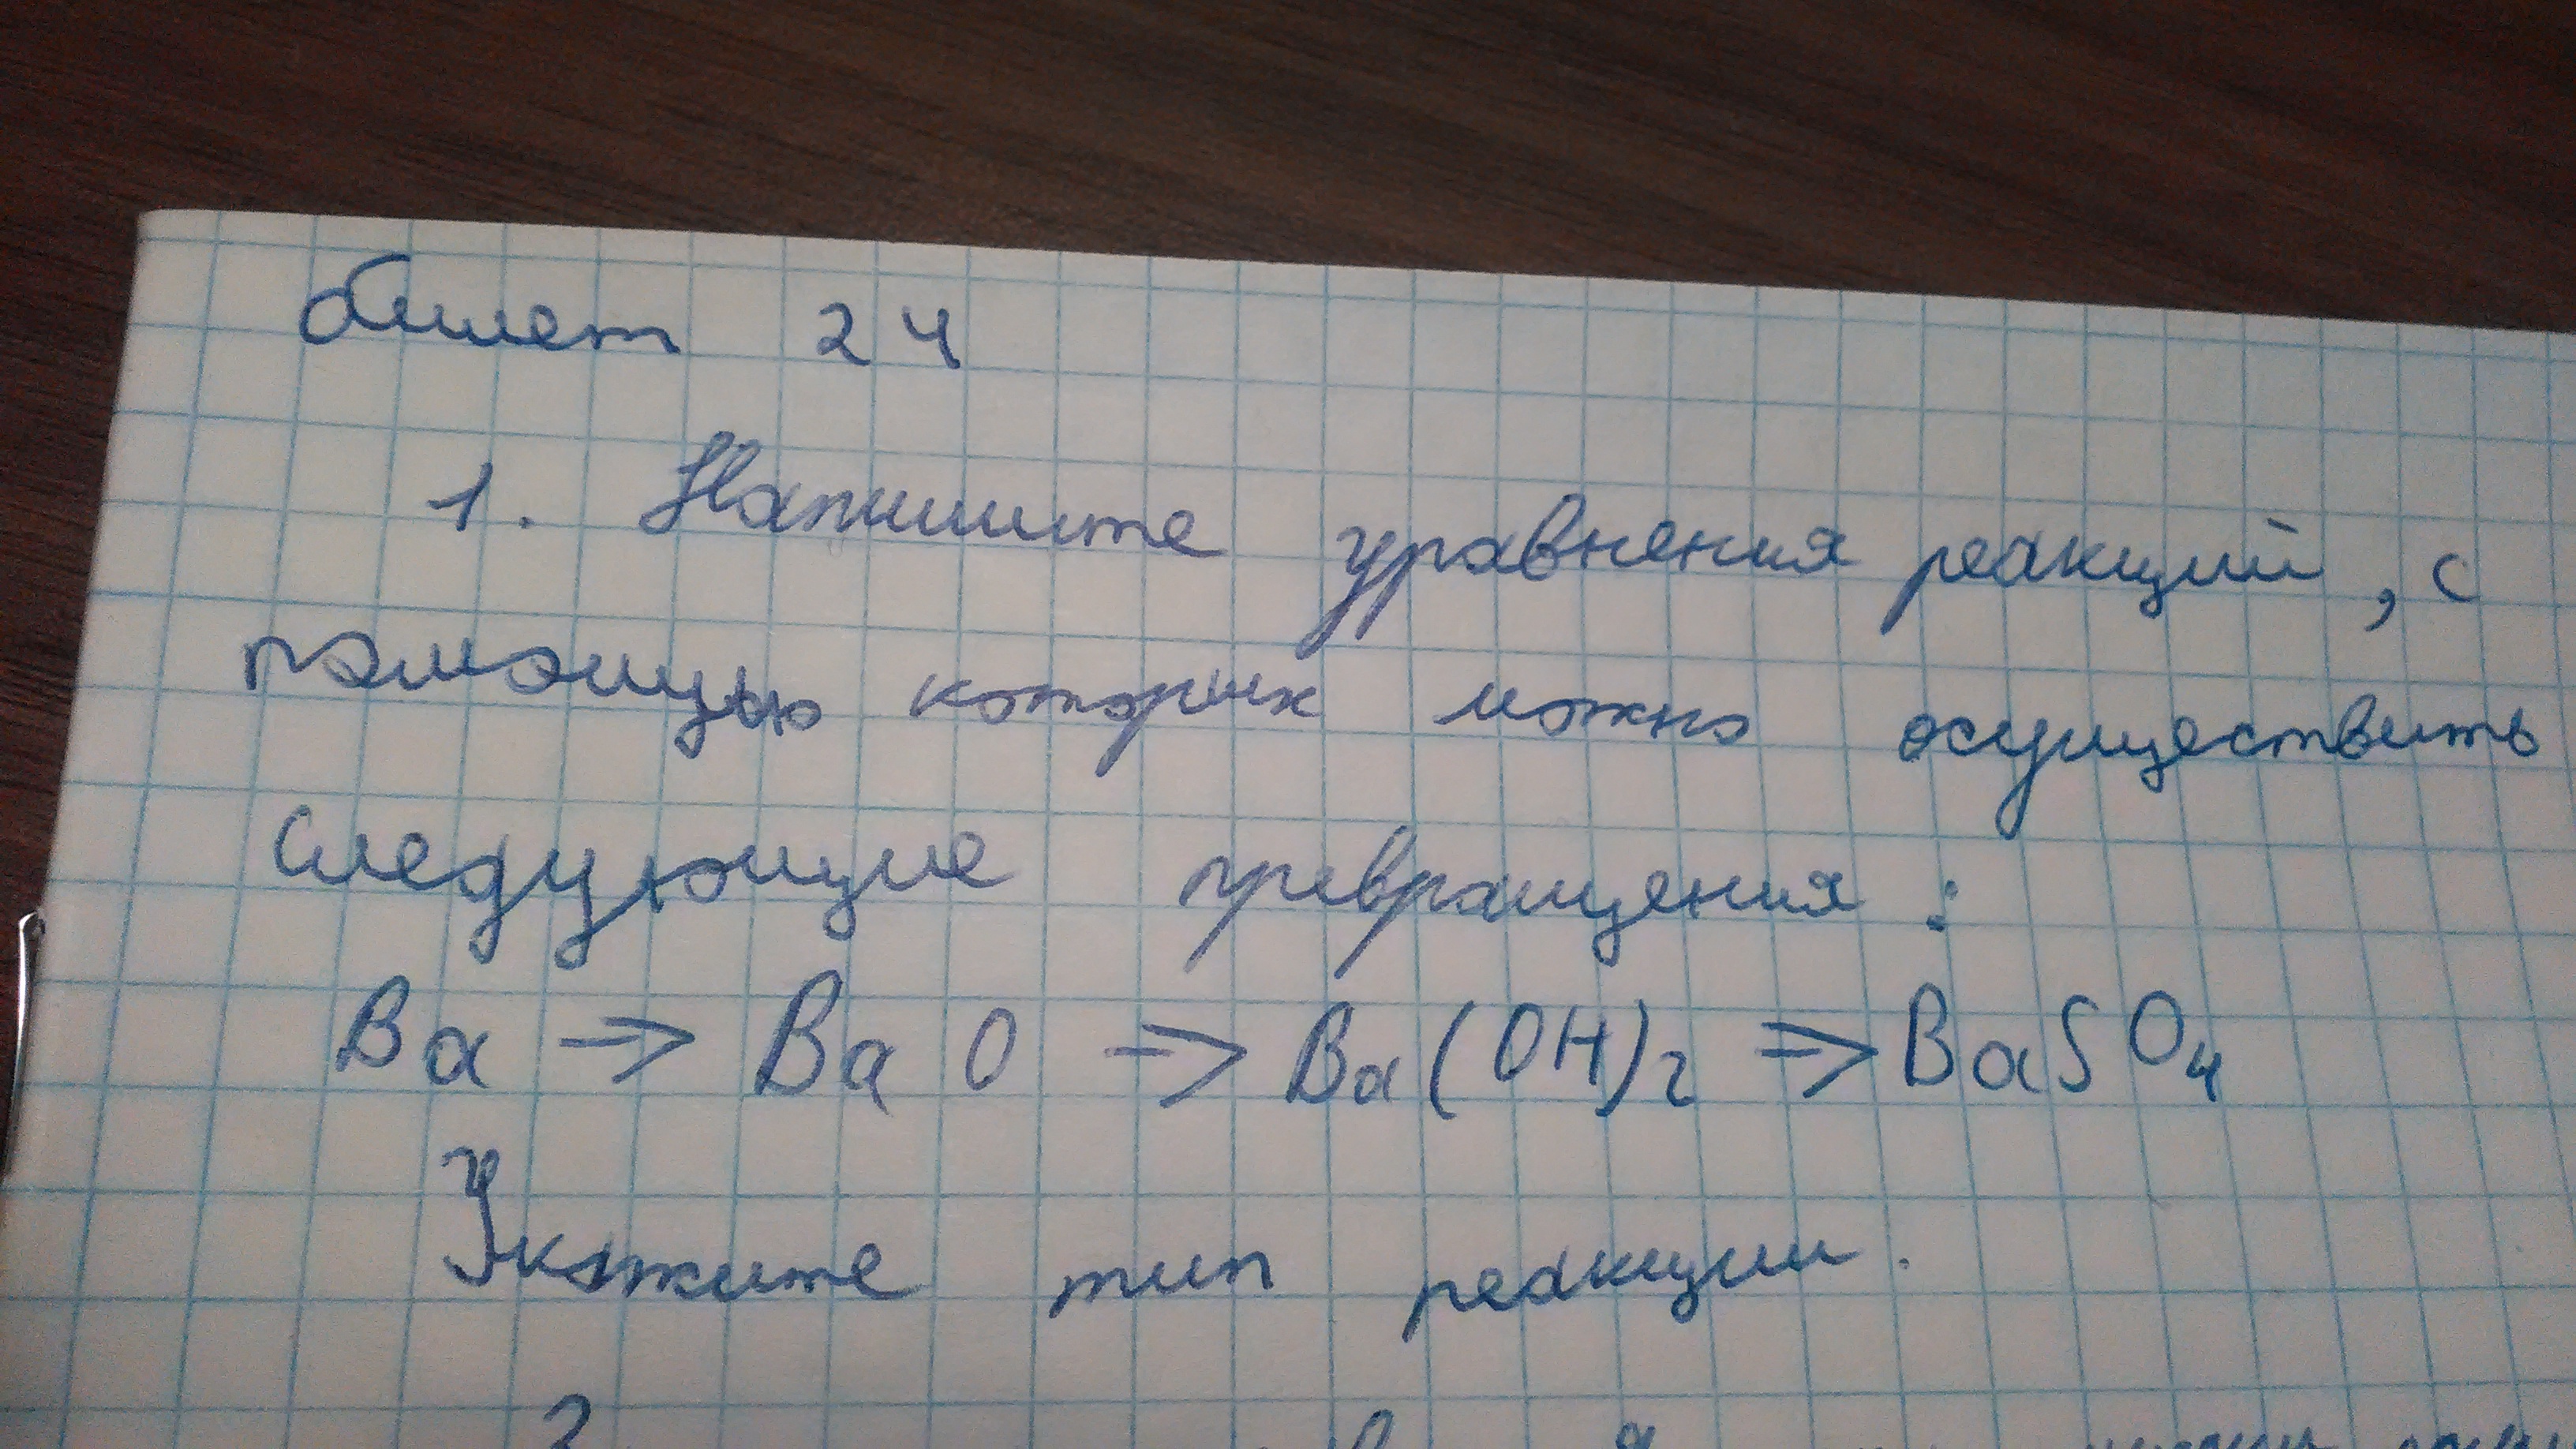 билет 24
1. Напишите уравнения реакций, с
помощью которых можно осуществить
следующие превращения:
Ba => BaO => Ba(OH)2 => BaSO4
Укажите тип реакции.
2